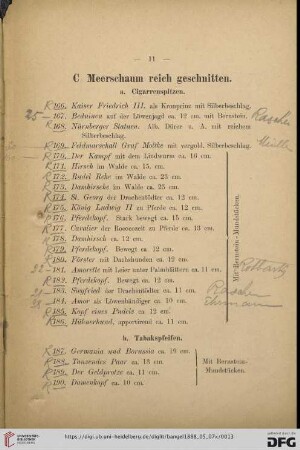 — 11 —
C Meerschaum reich geschnitten.
a. Cigarrenspitzen.
R 166. Kaiser Friedrich III. als Kronprinz mit Silberbeschlag.
25 — 167. Beduinen auf der Löwenjagd ca. 12 cm. mit Bernstein.
R 168. Nürnberger Statuen. Alb. Dürer u. A. mit reichem
Silberbeschlag.
R 169. Feldmarschall Graf Moltke mit vergold. Silberbeschlag.
R 170. Der Kampf mit dem Lindwurm ca. 16 cm.
R 171. Hirsch im Walde ca. 15. cm.
R 172. Rudel Rehe im Walde ca. 23 cm.
R 173. Damhirsche im Walde ca. 25 cm.
R 174. St. Georg der Drachentödter ca. 12 cm.
R 175. König Ludwig II zu Pferde ca. 12 cm.
R 176. Pferdekopf. Stark bewegt ca. 15 cm.
R 177. Cavalier der Rococozeit zu Pferde ca. 13 cm.
R 178. Damhirsch ca. 12 cm.
R 179. Pferdekopf. Bewegt ca. 12 cm.
R 180. Förster mit Dachshunden ca. 12 cm.
181. Amorette mit Leier unter Palmblättern ca. 11 cm.
R 182. Pferdekopf. Bewegt ca. 12 cm.
183. Siegfried der Drachentödter ca. 11 cm.
184. Amor als Löwenbändiger ca. 10 cm.
R 185. Kopf eines Pudels ca. 12 cm.
R 186. Hühnerhund, apportirend ca. 11 cm.
Mit Bernstein-
Mundstücken.
b. Tabakspfeifen.
R 187. Germania und Borussia ca. 16 cm.
R 188. Tanzendes Paar ca. 15 cm.
R 189. Der Geldprotze ca. 11 cm.
R 190. Damenkopf ca. 10 cm.
Mit Bernstein-
Mundstücken.
UNIVERSITÄTS-
BIBLIOTHEK
HEIDELBERG
http://digi.ub.uni-heidelberg.de/diglit/bangel1888_05_07x/0013
Gefördert durch die
DFG